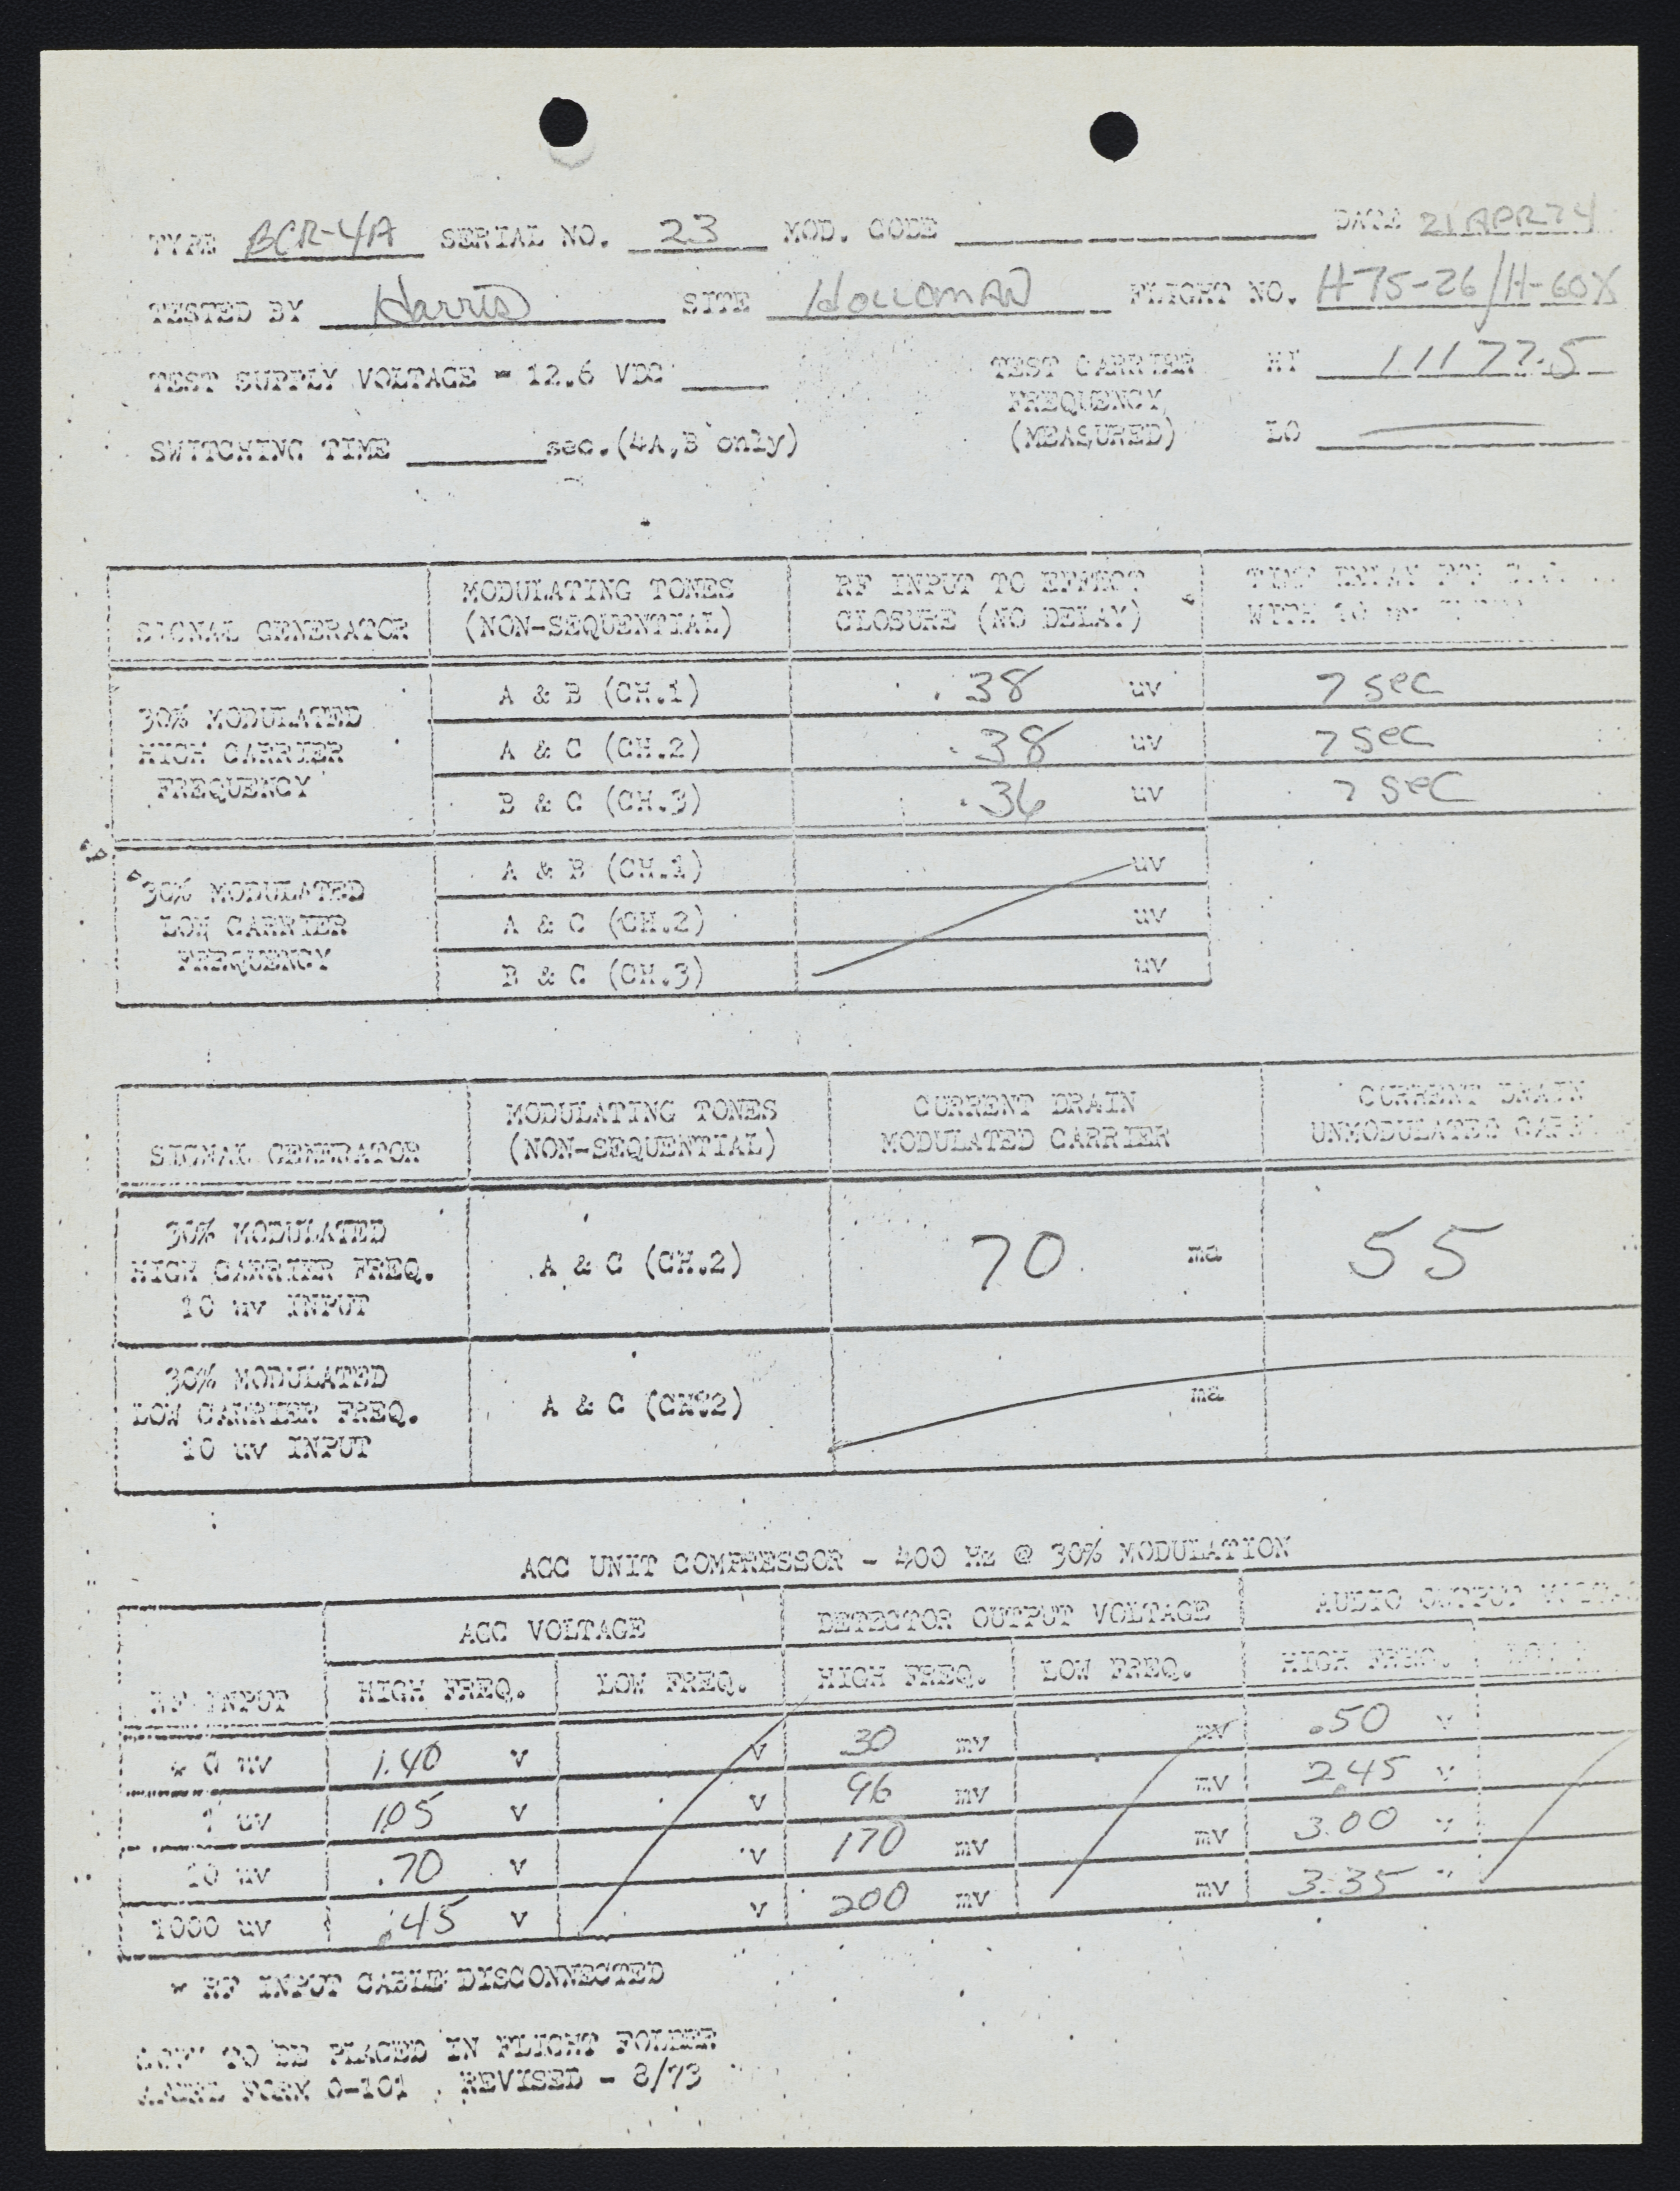 TYPE BCR-4A SERIAL NO. 23 MOD. CODE DATE 21 APR 74
TESTED BY Harris SITE HOLLOMAN FLIGHT NO. H75-26/H-60X
TEST SUPPLY VOLTAGE - 12.6 VDC TEST CARRIER HI 11177.5
FREQUENCY
SWITCHING TIME sec.(4A,B only) (MEASURED) LO —
MODULATING TONES RF INPUT TO EFFECT TIME DELAY FOR
SIGNAL GENERATOR (NON-SEQUENTIAL) CLOSURE (NO DELAY) WITH 10 uv
30% MODULATED A & B (CH.1) .38 uv 7 sec
HIGH CARRIER A & C (CH.2) .38 uv 7 sec
FREQUENCY B & C (CH.3) .36 uv 7 sec
30% MODULATED A & B (CH.1) uv
LOW CARRIER A & C (CH.2) uv
FREQUENCY B & C (CH.3) uv
MODULATING TONES CURRENT DRAIN CURRENT DRAIN
SIGNAL GENERATOR (NON-SEQUENTIAL) MODULATED CARRIER UNMODULATED
30% MODULATED
HIGH CARRIER FREQ. A & C (CH.2) 70 ma 55
10 uv INPUT
30% MODULATED
LOW CARRIER FREQ. A & C (CH.2) ma
10 uv INPUT
AGC UNIT COMPRESSOR - 400 Hz @ 30% MODULATION
AGC VOLTAGE DETECTOR OUTPUT VOLTAGE AUDIO OUTPUT
RF INPUT HIGH FREQ. LOW FREQ. HIGH FREQ. LOW FREQ. HIGH FREQ.
* 0 uv 1.40 v v 30 mv mv .50 v
1 uv 1.05 v v 96 mv mv 2.45 v
10 uv .70 v v 170 mv mv 3.00 v
1000 uv .45 v v 200 mv mv 3.35 "
* RF INPUT CABLE DISCONNECTED
COPY TO BE PLACED IN FLIGHT FOLDER
AFCRL FORM 0-101 . REVISED - 8/73